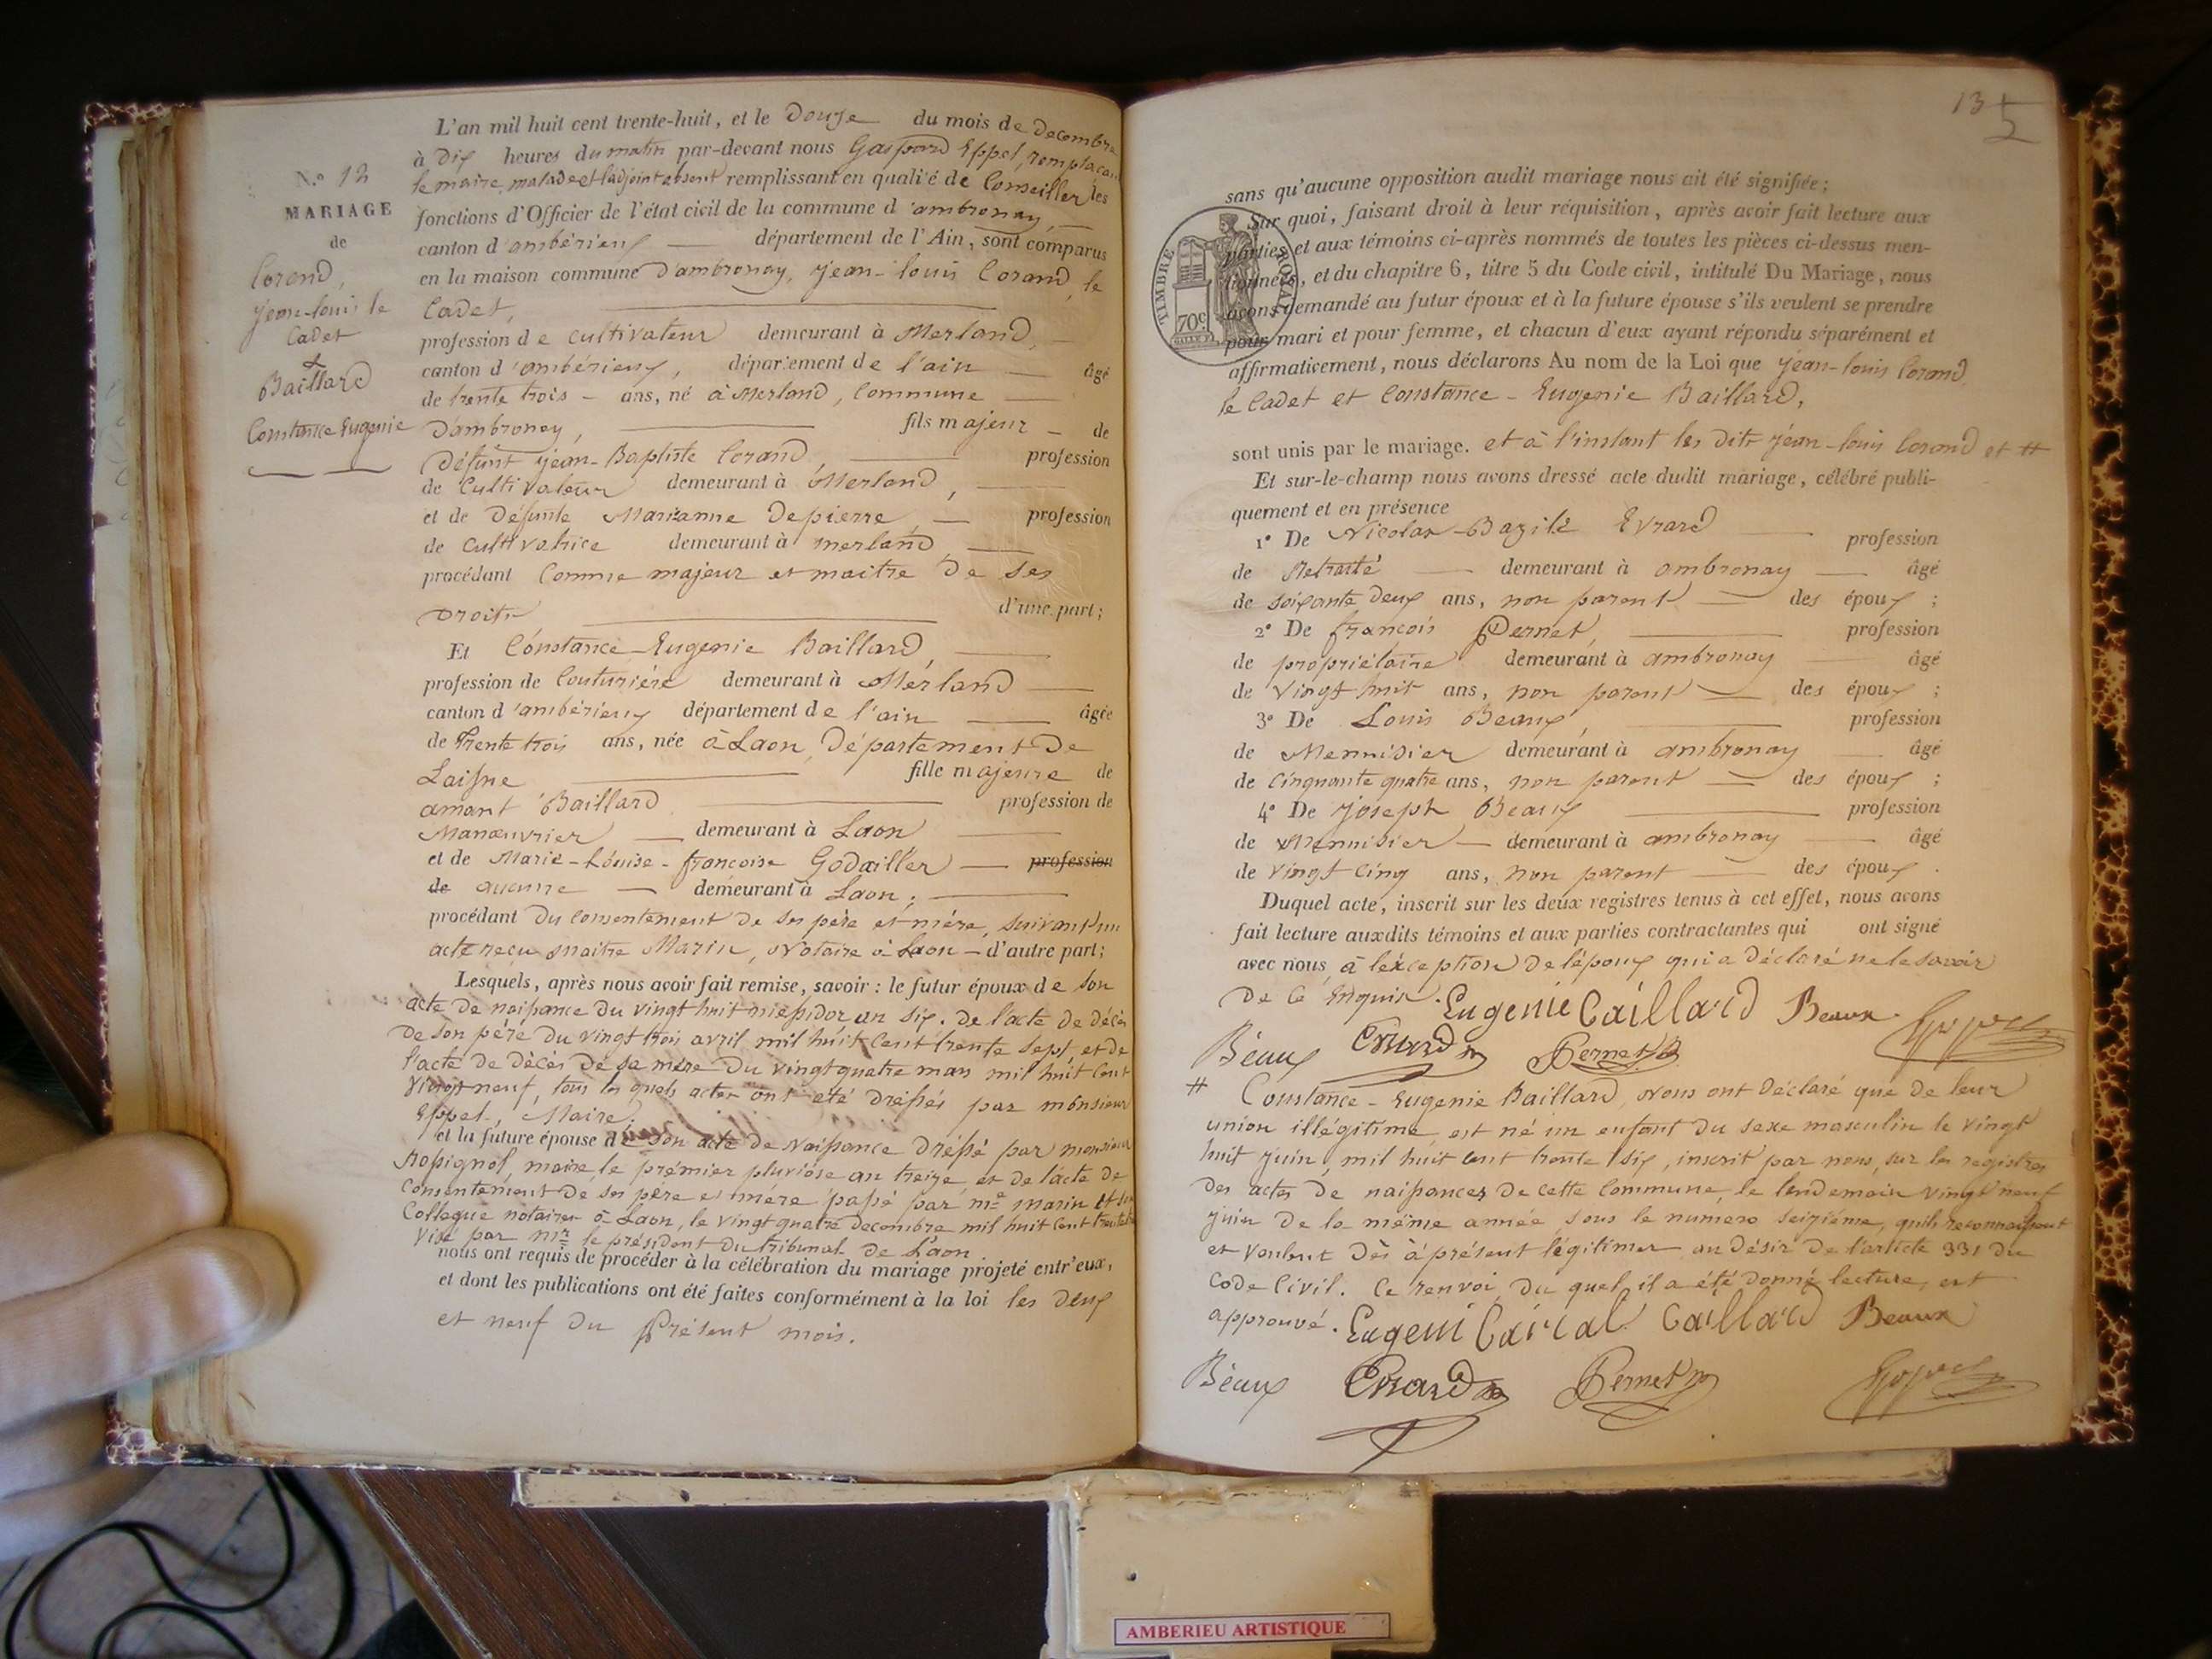 L'an mil huit cent trente-huit, et le Douze du mois de Decembre
à Dix heures du matin par-devant nous Gaspard Eppel, remplaçant
le maire, malade et l'adjoint absent remplissant en qualité de Conseiller les
N.° 12
MARIAGE
de
Corand,
jean-louis le
Cadet
&
Baillard
Constance Eugenie
fonctions d'Officier de l'état civil de la commune d'ambronay,
canton d'ambérieux département de l'Ain, sont comparus
en la maison commune D'ambronay, jean-louis Corand, le
Cadet,
profession de cultivateur demeurant à Merland,
canton d'ambérieux, département de l'ain âgé
de trente trois ans, né à Merland, Commune
D'ambronay, fils majeur de
Défunt jean-Baptiste Corand, profession
de Cultivateur demeurant à Merland,
et de Défunte Marianne Depierre, profession
de Cultivatrice demeurant à merland,
procédant Comme majeur et maitre De ses
Droits d'une part;
Et Constance-Eugenie Baillard,
profession de Couturière demeurant à Merland
canton d'ambérieux département de l'ain âgée
de Trente trois ans, née à Laon, Département De
Laisne fille majeure de
amant Baillard profession de
Manœuvrier demeurant à Laon
et de Marie-Louise-françoise Godailler profession
de aucune demeurant à Laon;
procédant Du Consentement de ses père et mère, suivant un
acte reçu maitre Marin, Notaire à Laon - d'autre part;
Lesquels, après nous avoir fait remise, savoir: le futur époux de son
acte de naissance du vingt huit messidor an six. de l'acte de décès
de son père du vingt trois avril mil huit Cent trente sept, et de
l'acte de décès de sa mère Du vingt quatre mars mil huit Cent
vingt neuf, tous les quels actes ont été dressés par monsieur
Eppel, Maire;
et la future épouse de son acte de Naissance Dressé par monsieur
Rossignol, maire le prémier pluviôse an treize, et de l'acte de
Consentement De ses père et mère passé par m.e marin et son
Collegue notaires à Laon, le vingt quatre decembre mil huit Cent trente
Visé par m.r le président du tribunal de Laon.
nous ont requis de procéder à la célébration du mariage projeté entr'eux,
et dont les publications ont été faites conformément à la loi les deux
et neuf Du Présent mois.
13
sans qu'aucune opposition audit mariage nous ait été signifiée;
Sur quoi, faisant droit à leur réquisition, après avoir fait lecture aux
parties et aux témoins ci-après nommés de toutes les pièces ci-dessus men-
tionnées, et du chapitre 6, titre 5 du Code civil, intitulé Du Mariage, nous
avons demandé au futur époux et à la future épouse s'ils veulent se prendre
pour mari et pour femme, et chacun d'eux ayant répondu séparément et
affirmativement, nous déclarons Au nom de la Loi que jean-louis Corand,
le Cadet et Constance-Eugenie Baillard,
TIMBRE ROYAL
70c
sont unis par le mariage. et à l'instant les Dits jean-louis Corand et #
Et sur-le-champ nous avons dressé acte dudit mariage, célébré publi-
quement et en présence
1° De Nicolas-Bazile Evrard profession
de Retraité demeurant à ambronay âgé
de soixante Deux ans, non parent des époux;
2° De françois Pernet, profession
de propriétaire demeurant à ambronay âgé
de Vingt huit ans, non parent des époux;
3° De Louis Beaux, profession
de Mennisier demeurant à ambronay âgé
de Cinquante quatre ans, non parent des époux;
4° De joseph Beaux profession
de Mennisier demeurant à ambronay âgé
de Vingt Cinq ans, non parent des époux.
Duquel acte, inscrit sur les deux registres tenus à cet effet, nous avons
fait lecture auxdits témoins et aux parties contractantes qui ont signé
avec nous, à l'éxception De l'époux qui a déclaré ne le savoir
De Ce Enquis. Eugenie Caillard Beaux
Béaux Evrard Pernet
# Constance-Eugenie Baillard, Nous ont Déclaré que de leur
union illégitime, est né un enfant Du sexe masculin le vingt
huit juin, mil huit Cent trente six, inscrit par nous, sur les registres
Des actes De naissances De Cette Commune, le lendemain vingt neuf
juin De la même année sous le numero seizième, qu'ils reconnaissent
et veulent Dès à présent légitimer au Désir De l'article 331 du
Code Civil. Ce renvoi, Du quel il a été donné lecture, est
approuvé. Eugeni Caical Caillard Beaux
Béaux Evrard Pernet
AMBERIEU ARTISTIQUE